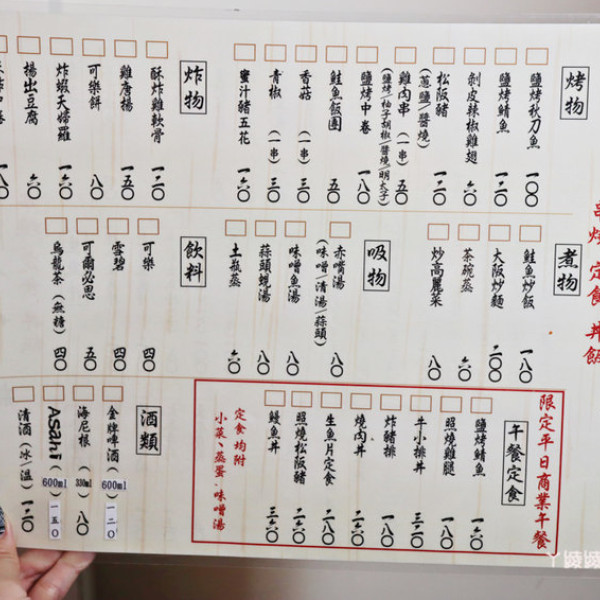 串燒 定食 丼飯
烤物
鹽烤秋刀魚 一〇〇
鹽烤鯖魚 一二〇
剝皮辣椒雞翅 六〇
松阪豬 (蔥鹽/醬燒) 一二〇
雞肉串 (一串) 五〇
(鹽烤/柚子胡椒/醬燒/明太子)
鹽烤中卷 一八〇
鮭魚飯糰 五〇
香菇 (一串) 三〇
青椒 (一串) 三〇
蜜汁豬五花 六〇
炸物
酥炸雞軟骨 一二〇
雞唐揚 一五〇
可樂餅 八〇
炸蝦天婦羅 一六〇
揚出豆腐 六〇
一八〇
煮物
鮭魚炒飯 一八〇
大阪炒麵 二〇〇
茶碗蒸 六〇
炒高麗菜 八〇
吸物
赤嘴湯 八〇
(味噌/清湯/蒜頭)
味噌魚湯 八〇
蒜頭蜆湯 八〇
土瓶蒸 六〇
飲料
可樂 四〇
雪碧 四〇
可爾必思 五〇
烏龍茶(無糖) 四〇
限定平日商業午餐
午餐定食
鹽烤鯖魚 一六〇
照燒雞腿 一八〇
牛小排丼 三二〇
炸豬排 一八〇
燒肉丼 二六〇
生魚片定食 二八〇
照燒松阪豬 二六〇
鰻魚丼 三六〇
定食均附
小菜、蒸蛋、味噌湯
酒類
金牌啤酒 (600ml) 一二〇
海尼根 (330ml) 八〇
Asahi (600ml) 一五〇
清酒(冰/溫) 一二〇